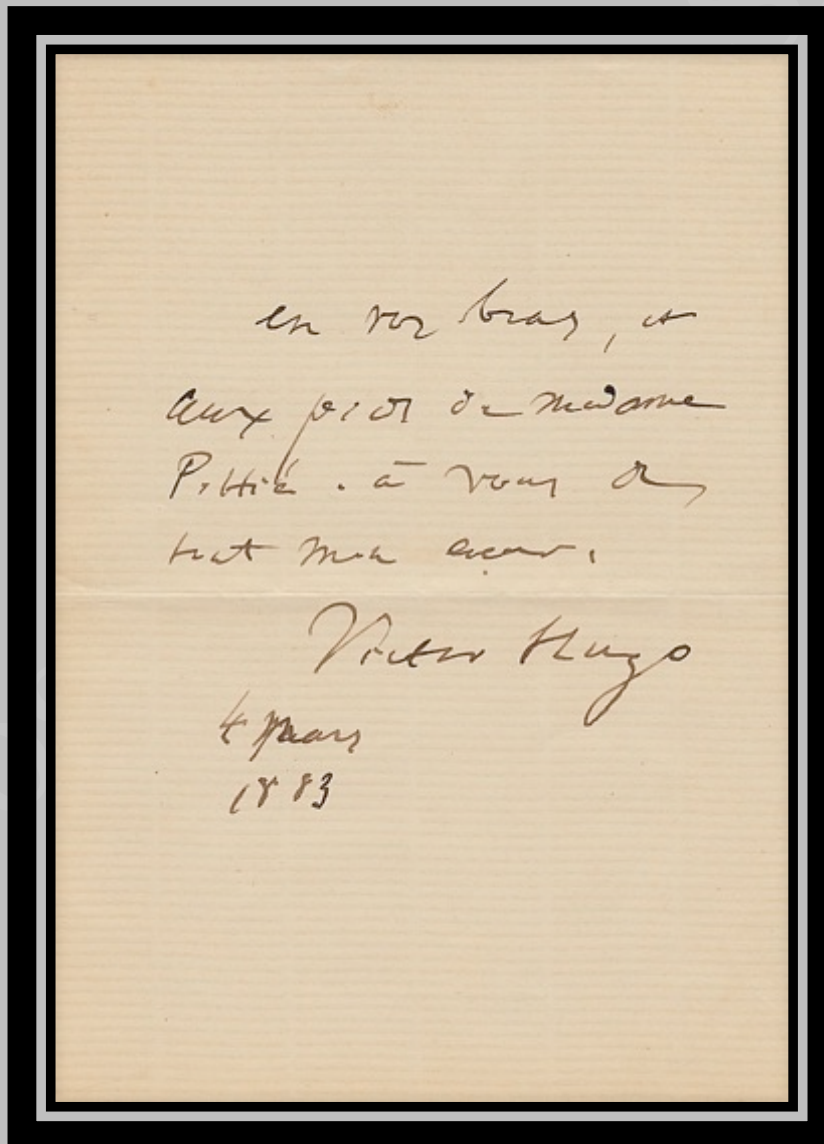 en vos bras, et
aux pieds de Madame
Pittié. à vous de
tout mon coeur.
Victor Hugo
4 mars
1883